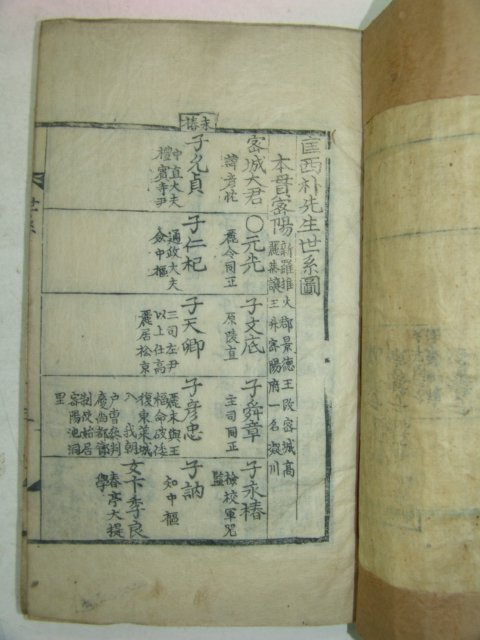 匡西朴先生世系圖
本貫密陽
新羅推火郡景德王改密城高
麗恭讓王升密陽府一名凝川
永椿
密城大君
諱彦忱
○元光
麗令同正
子文底
原陵直
子舜章
主司同正
子永椿
檢校軍咒
監
子允貞
中直大夫
禮賓寺尹
子仁杞
通政大夫
僉中樞
子天卿
二司左尹
以上仕高
麗居松京
子彦忠
麗末與王
福命改法
復東萊城
入我朝
戶曹參判
卜居
密陽池洞
里
子訥
知中樞
女卞季良
春亭大提
學
世系